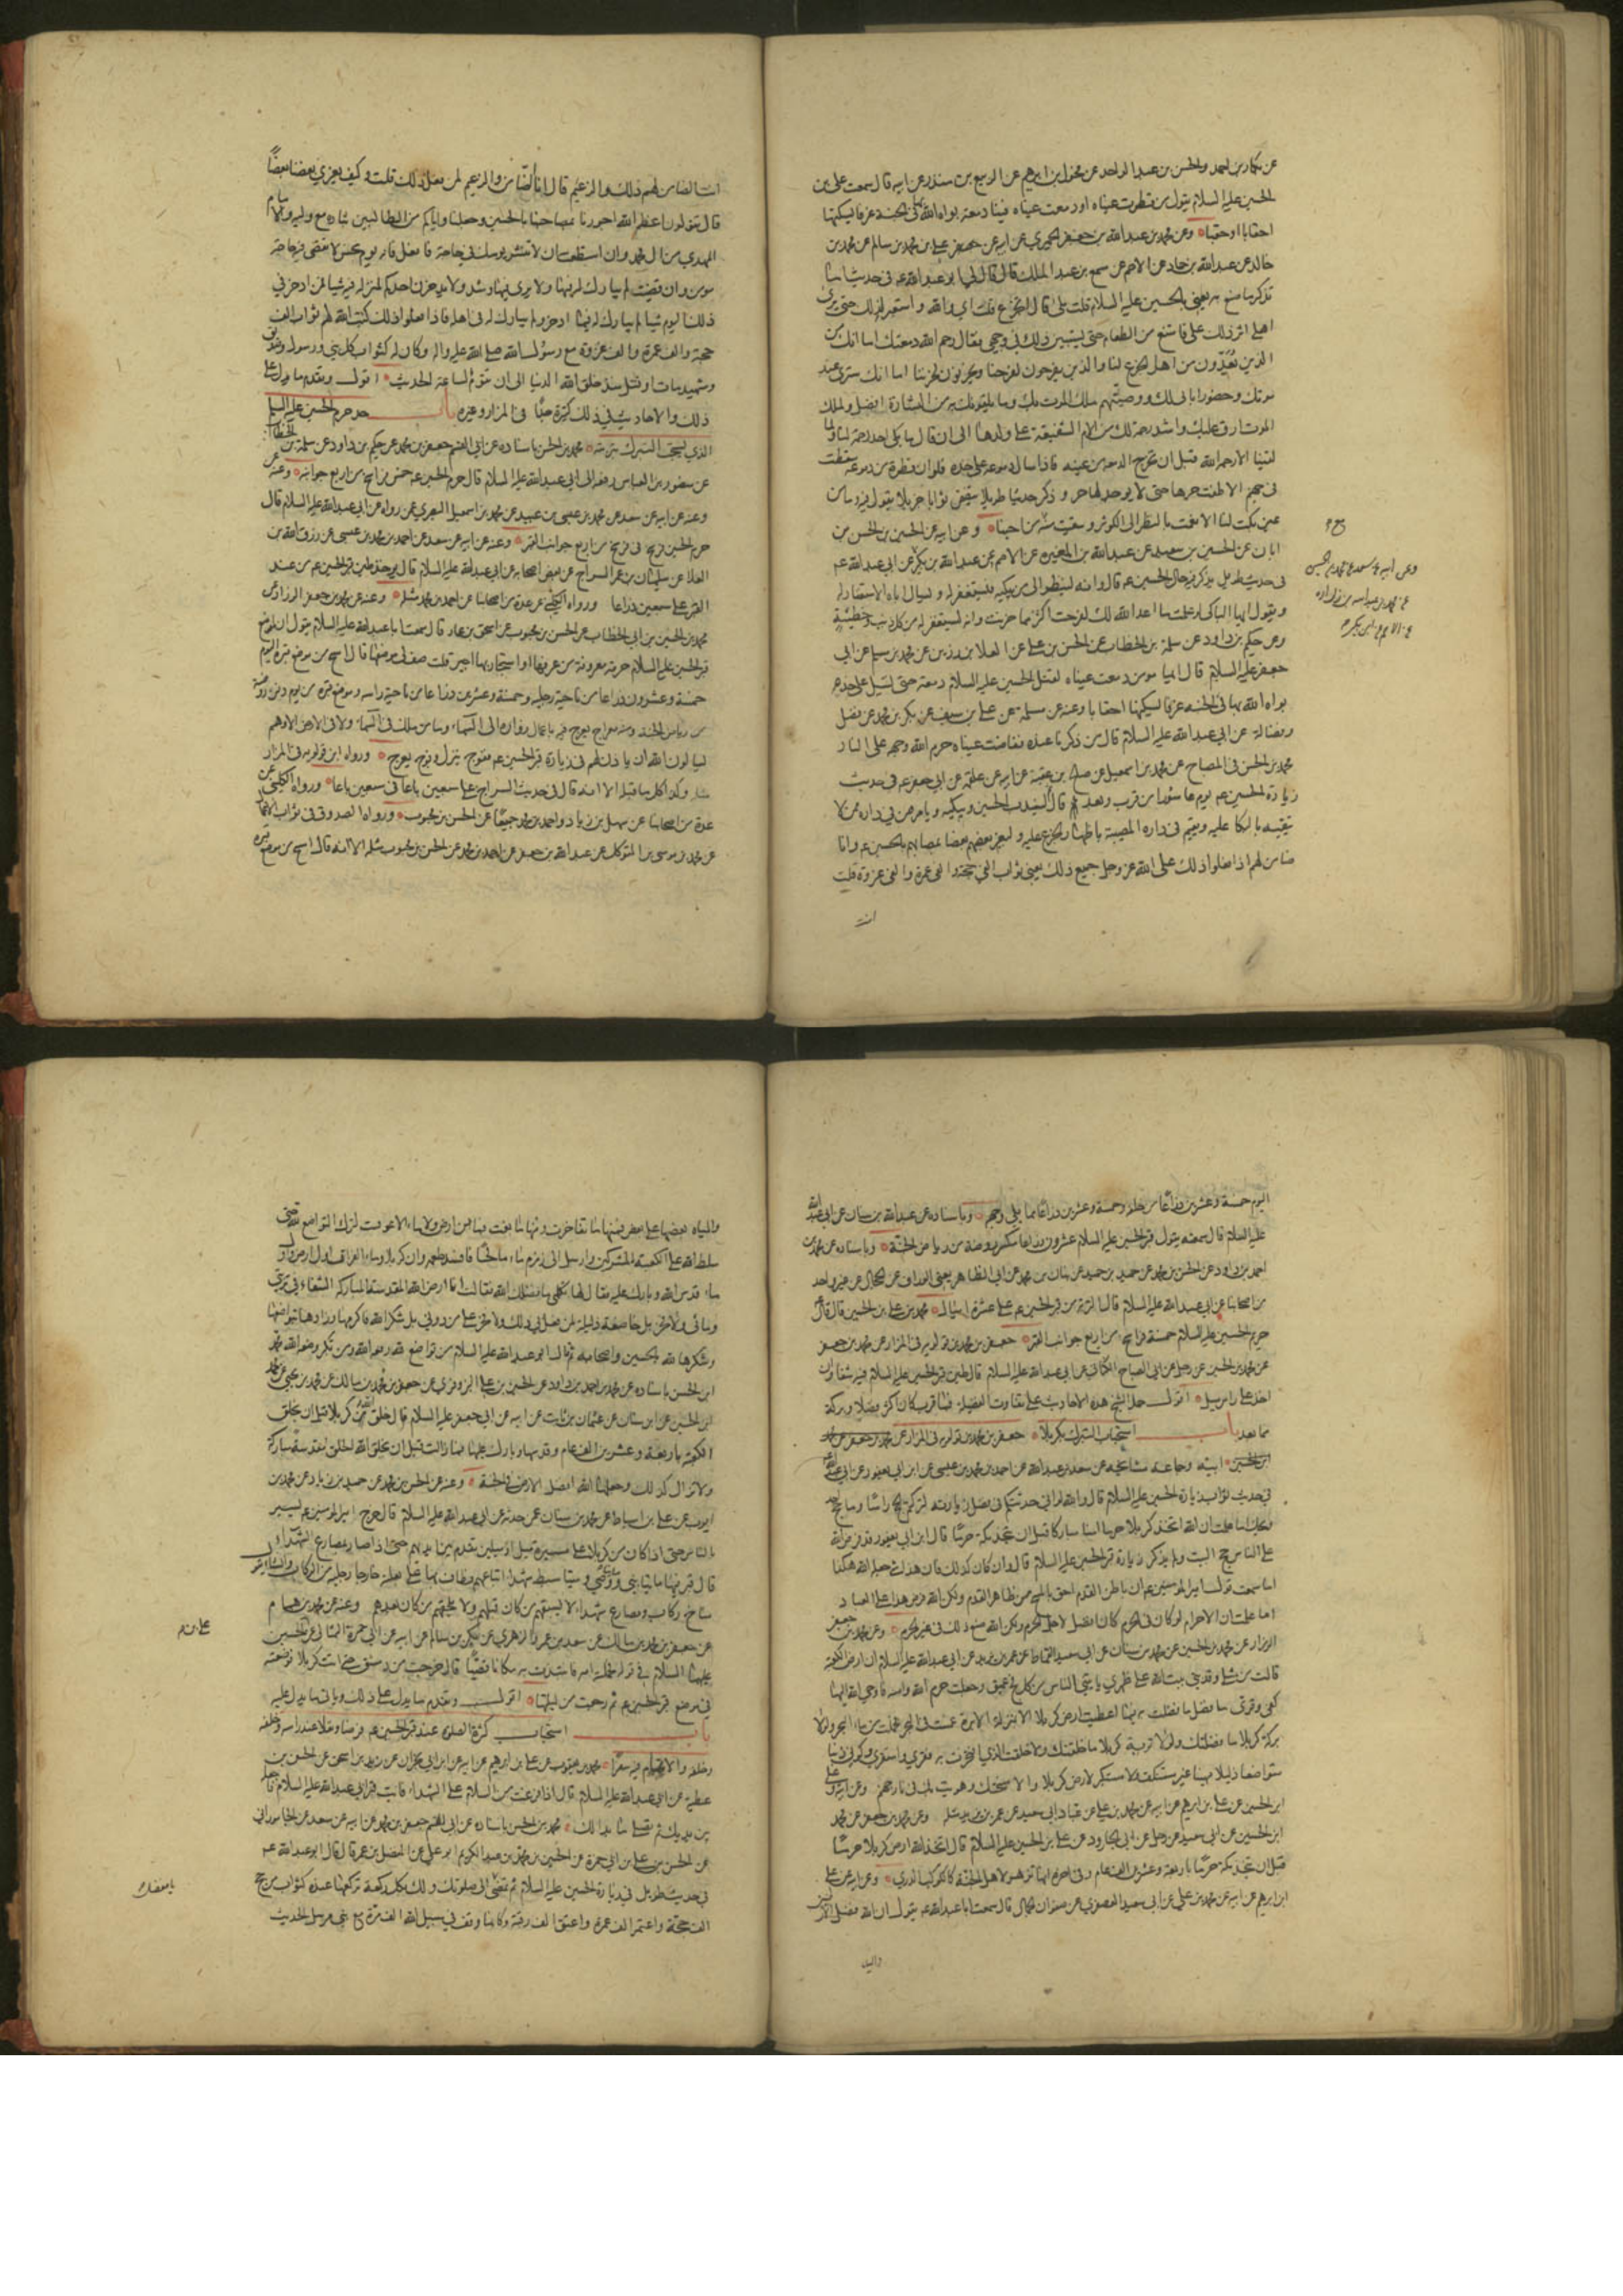 عن بكار بن احمد والحسن بن عبد الواحد عن مخول بن ابرهيم عن الربيع بن منذر عن ابيه قال سمعت علي بن
الحسين عليه السلام يقول من قطرت عيناه او دمعت عيناه فينا دمعة بواه الله بها في الجنة غرفا يسكنها
احقابا او حقبا وعن محمد بن عبد الله بن جعفر الحميري عن ابيه عن علي بن محمد بن سالم عن محمد بن
خالد عن عبد الله بن حماد عن الاصم عن مسمع بن عبد الملك قال قال لي ابو عبد الله عم في حديث اما
تذكر ما صنع به يعني بالحسين عليه السلام قلت بلى قال اتجزع قلت اي والله واستعبر لذلك حتى يرى
اهلي اثر ذلك علي فامتنع من الطعام حتى يستبين ذلك في وجهي فقال رحم الله دمعتك اما انك من
الذين يعدون من اهل الجزع لنا والذين يفرحون لفرحنا ويحزنون لحزننا اما انك سترى عند
موتك وحضور ابائي لك ووصيتهم ملك الموت بك وما يلقونك به من البشارة افضل ولملك
الموت ارق عليك واشد رحمة لك من الام الشفيقة على ولدها الى ان قال ما بكى احد رحمة لنا ولما
لقينا الا رحمه الله قبل ان تخرج الدمعة من عينه فاذا سال دموعه على خده فلو ان قطرة من دموعه سقطت
في جهنم لاطفت حرها حتى لا يوجد لها حر وذكر حديثا طويلا يتضمن ثوابا جزيلا يقول فيه وما من
عين بكت لنا الا نعمت بالنظر الى الكوثر وسقيت منه من احبنا وعن ابيه عن الحسين بن الحسن بن
ابان عن الحسين بن سعيد عن عبد الله بن المغيرة عن الاصم عن عبد الله بن بكير عن ابي عبد الله عم
في حديث طويل يذكر فيه حال الحسين عم قال وانه لينظر الى من يبكيه فيستغفر له ويسال اباه الاستغفار له
ويقول ايها الباكي لو علمت ما اعد الله لك لفرحت اكثر مما حزنت وانه ليستغفر له من كل ذنب وخطيئة
وعن حكيم بن داود عن سلمة بن الخطاب عن الحسن بن علي عن العلا بن رزين عن محمد بن مسلم عن ابي
جعفر عليه السلام قال ايما مومن دمعت عيناه لقتل الحسين عليه السلام دمعة حتى تسيل على خده
بواه الله بها في الجنة غرفا يسكنها احقابا وعنه عن سلمة عن علي بن سيف عن بكر بن محمد عن فضيل
وفضالة عن ابي عبد الله عليه السلام قال من ذكرنا عنده ففاضت عيناه حرم الله وجهه على النار
محمد بن الحسن في المصباح عن محمد بن اسمعيل عن صالح بن عقبة عن ابيه عن علقمة عن ابي جعفر عم في حديث
زيارة الحسين عم يوم عاشورا من قرب وبعد قال ثم ليندب الحسين ويبكيه ويامر من في داره ممن لا
يتقيه بالبكا عليه ويقيم في داره المصيبة باظهار الجزع عليه وليعز بعضهم بعضا بمصابهم بالحسين عم وانا
ضامن لهم اذا فعلوا ذلك على الله عز وجل جميع ذلك يعني ثواب الفي حجة والفي عمرة والفي غزوة قلت
انت
وعن ابيه عن سعد عن محمد بن الحسين
عن محمد بن عبد الله بن زراره
عن الاصم عن ابن بكير
انت الضامن لهم ذلك والزعيم قال انا الضامن والزعيم لمن فعل ذلك قلت وكيف يعزي بعضنا بعضا
قال تقولون اعظم الله اجورنا بمصابنا بالحسين وجعلنا واياكم من الطالبين بثاره مع وليه والامام
المهدي من ال محمد وان استطعت ان لا تنتشر يومك في حاجة فافعل فانه يوم نحس لا تقضى فيه حاجة
مومن وان قضيت لم يبارك له فيها ولا يرى فيها رشد ولا يدخرن احدكم لمنزله فيه شيا فمن ادخر في
ذلك اليوم شيا لم يبارك له فيما ادخر ولم يبارك له في اهله فاذا فعلوا ذلك كتب الله لهم ثواب الف
حجة والف عمرة والف غزوة مع رسول الله صلى الله عليه واله وكان له كثواب كل نبي ورسول وصديق
وشهيد مات او قتل منذ خلق الله الدنيا الى ان تقوم الساعة الحديث اقول وتقدم ما يدل على
ذلك والاحاديث في ذلك كثيرة جدا في المزار وغيره باب حد حرم الحسين عليه السلم
الذي يستحب التبرك بتربته محمد بن الحسن باسناده عن ابي القسم جعفر بن محمد عن حكيم بن داود عن سلمة بن الخطاب
عن منصور بن العباس رفعه الى ابي عبد الله عليه السلام قال حرم الحسين عم خمس فراسخ من اربع جوانبه وعنه
وعنه عن ابيه عن سعد عن محمد بن عيسى بن عبيد عن محمد بن اسمعيل البصري عمن رواه عن ابي عبد الله عليه السلام قال
حرم الحسين فرسخ في فرسخ من اربع جوانب القبر وعنه عن ابيه عن سعد عن احمد بن محمد بن عيسى عن رزق الله بن
العلا عن سليمان بن عمر السراج عن بعض اصحابه عن ابي عبد الله عليه السلام قال يوخذ طين قبر الحسين عم من عند
القبر على سبعين ذراعا ورواه الكليني عن عدة من اصحابنا عن احمد بن محمد مثله وعنه عن محمد بن جعفر الرزاز عن
محمد بن الحسين بن ابي الخطاب عن الحسن بن محبوب عن اسحق بن عمار قال سمعت ابا عبد الله عليه السلام يقول ان لموضع
قبر الحسين عليه السلام حرمة معروفة من عرفها واستجار بها اجير قلت صف لي موضعها قال امسح من موضع قبره اليوم
خمسة وعشرون ذراعا من ناحية رجليه وخمسة وعشرين ذراعا من ناحية راسه وموضع قبره من يوم دفن روضة
من رياض الجنة ومنه معراج يعرج فيه باعمال زواره الى السماء وما من ملك في السماء ولا في الارض الا وهم
يسالون الله ان ياذن لهم في زيارة قبر الحسين عم ففوج ينزل وفوج يعرج ورواه ابن قولويه في المزار
مثله وكذا كل ما قبله الا انه قال في حديث السراج على سبعين باعا في سبعين باعا ورواه الكليني عن
عدة من اصحابنا عن سهل بن زياد واحمد بن محمد جميعا عن الحسن بن محبوب ورواه الصدوق في ثواب الاعمال
عن محمد بن موسى بن المتوكل عن عبد الله بن جعفر عن احمد بن محمد عن الحسن بن محبوب مثله الا انه قال امسح من موضع قبره
اليوم خمسة وعشرين ذراعا من خلفه وخمسة وعشرين ذراعا مما يلي وجهه وباسناده عن عبد الله بن سنان عن ابي عبد الله
عليه السلام قال سمعته يقول قبر الحسين عليه السلام عشرون ذراعا مكسرا روضة من رياض الجنة وباسناده عن محمد بن
احمد بن داود عن الحسن بن محمد عن حميد بن عن بنان بن محمد عن ابي الطاهر يعني الوراق عن الحجال عن غير واحد
من اصحابنا عن ابي عبد الله عليه السلام قال التربة من قبر الحسين عم على عشرة اميال محمد بن علي بن الحسين قال قال
حريم الحسين عليه السلام خمسة فراسخ من اربع جوانب القبر جعفر بن محمد بن قولويه في المزار عن محمد بن جعفر
عن محمد بن الحسين عن رجل عن ابي الصباح الكناني عن ابي عبد الله عليه السلام قال طين قبر الحسين عليه السلام فيه شفا وان
اخذ على راس ميل اقول حمل الشيخ هذه الاحاديث على تفاوت الفضيلة فما قرب كان اكثر فضلا وبركة
مما بعد باب استحباب التبرك بكربلا جعفر بن محمد بن قولويه في المزار عن محمد بن جعفر عن محمد
ابن الحسين ابيه وجماعة مشايخه عن سعد بن عبد الله عن احمد بن محمد بن عيسى عن ابن ابي يعفور عن ابي عبد الله
في حديث ثواب زيارة الحسين عليه السلام قال والله لو اني حدثتكم في فضل زيارته لتركتم الحج راسا وما حج احد
ويحك اما علمت ان الله اتخذ كربلا حرما امنا مباركا قبل ان يتخذ مكة حرما قال ابن ابي يعفور قد فرض الله
على الناس حج البيت ولم يذكر زيارة قبر الحسين عليه السلام قال وان كان كذلك فان هذا شي جعله الله هكذا
اما سمعت قول امير المومنين عم ان باطن القدم احق بالمسح من ظاهر القدم ولكن الله فرض هذا على العباد
اما علمت ان الاحرام لو كان في الحرم كان افضل لاجل الحرم ولكن الله صنع ذلك في غير الحرم وعن محمد بن جعفر
الرزاز عن محمد بن الحسين عن محمد بن سنان عن ابي سعيد القماط عن عمر بن يزيد عن ابي عبد الله عليه السلام ان ارض الكعبة
قالت من مثلي وقد بني بيت الله على ظهري ياتيني الناس من كل فج عميق وجعلت حرم الله وامنه فاوحى الله اليها
كفي وقري ما فضل ما فضلت به فيما اعطيت ارض كربلا الا بمنزلة الابرة غمست في البحر فحملت من ماء البحر ولولا
تربة كربلا ما فضلتك ولولا من تربة كربلا ما خلقتك ولا خلقت الذي افتخرت به فقري واستقري وكوني دنيا
متواضعا ذليلا مهينا غير مستنكف ولا مستكبر لارض كربلا والا سخت بك وهويت بك في نار جهنم وعن ابيه وعلي
ابن الحسين عن علي بن ابرهيم عن ابيه عن محمد بن علي عن عباد ابي سعيد عن عمر بن يزيد مثله وعن محمد بن جعفر عن محمد
ابن الحسين عن ابي سعيد عن رجل عن ابي الجارود عن علي بن الحسين عليه السلام قال اتخذ الله ارض كربلا حرما
قبل ان يتخذ مكة حرما باربعة وعشرين الف عام وفي اخره انها تزهر لاهل الجنة كالكوكب الدري وعن ابيه عن علي
ابن ابرهيم عن ابيه عن محمد بن علي عن ابي سعيد العصفري عن صفوان الجمال قال سمعت ابا عبد الله عم يقول ان الله فضل الارضين
والمياه
والمياه بعضها على بعض فمنها ما تفاخرت ومنها ما بغت فما من ارض ولا ماء الا عوقبت لترك التواضع لله حتى
سلط الله على الكعبة المشركين وارسل الى زمزم ماء مالحا فافسد طعمه وان كربلا وماء الفرات اول ارض واول
ماء قدس الله وبارك عليه فقال لها تكلمي بما فضلك الله فقالت انا ارض الله المقدسة المباركة الشفاء في تربتي
ومائي ولا فخر بل خاضعة ذليلة لمن فعل بي ذلك ولا فخر على من دوني بل شكرا لله فاكرمها وزادها بتواضعها
وشكرها لله بالحسين واصحابه ثم قال ابو عبد الله عليه السلام من تواضع لله رفعه الله ومن تكبر وضعه الله محمد
ابن الحسن باسناده عن محمد بن احمد بن داود عن الحسين بن علي البزوفري عن جعفر بن محمد بن مالك عن محمد بن يحيى عن محمد
ابن الحسين عن ابن سنان عن عثمان بن ثابت عن ابيه عن ابي جعفر عليه السلام قال خلق الله كربلا قبل ان يخلق
الكعبة باربعة وعشرين الف عام وقدسها وبارك عليها فما زالت قبل ان يخلق الله الخلق مقدسة مباركة
ولا تزال كذلك وجعلها الله افضل الارض في الجنة وعنه عن الحسن بن محمد عن حميد بن زياد عن محمد بن
ايوب عن علي بن اسباط عن محمد بن سنان عمن حدثه عن ابي عبد الله عليه السلام قال خرج امير المومنين عم يسير
بالناس حتى اذا كان من كربلا على مسيرة ميل او ميلين تقدم بين ايديهم حتى اذا صار بمصارع الشهداء
قال قبض فيها مايتا نبي ومايتا وصي ومايتا سبط شهدا باتباعهم فطاف بها على بغلته خارجا رجليه من الركاب وانشا يقول
مناخ ركاب ومصارع شهداء لا يسبقهم من كان قبلهم ولا يلحقهم من كان بعدهم وعنه عن محمد بن همام
عن جعفر بن محمد بن مالك عن سعد بن عمرو الزهري عن بكر بن سالم عن ابيه عن ابي حمزة الثمالي عن علي بن الحسين
عليهما السلام في قوله فحملته امه فانتبذت به مكانا قصيا قال خرجت من دمشق حتى اتت كربلا فوضعته
في موضع قبر الحسين عم ثم رجعت من ليلتها اقول وتقدم ما يدل على ذلك وياتي ما يدل عليه
باب استحباب كثرة الصلوة عند قبر الحسين عم فرضا ونفلا عند راسه وخلفه
وخلفه والاتمام فيه سفرا محمد بن يعقوب عن علي بن ابرهيم عن ابيه عن ابن ابي نجران عن يزيد بن اسحق عن الحسن بن
عطية عن ابي عبد الله عليه السلام قال اذا فرغت من السلام على الشهداء فات قبر ابي عبد الله عليه السلام فاجعله
بين يديك ثم تصلي ما بدا لك محمد بن الحسن باسناده عن ابي القسم جعفر بن محمد عن ابيه عن سعد عن الجاموراني
عن الحسن بن علي بن ابي حمزة عن الحسين بن محمد بن عبد الكريم ابو علي عن المفضل بن عمر قال قال ابو عبد الله عم
في حديث طويل في زيارة الحسين عليه السلام ثم تمضي الى صلوتك ولك بكل ركعة تركعها عنده كثواب من حج
الف حجة واعتمر الف عمرة واعتق الف رقبة وكانما وقف في سبيل الله الف مرة مع نبي مرسل الحديث